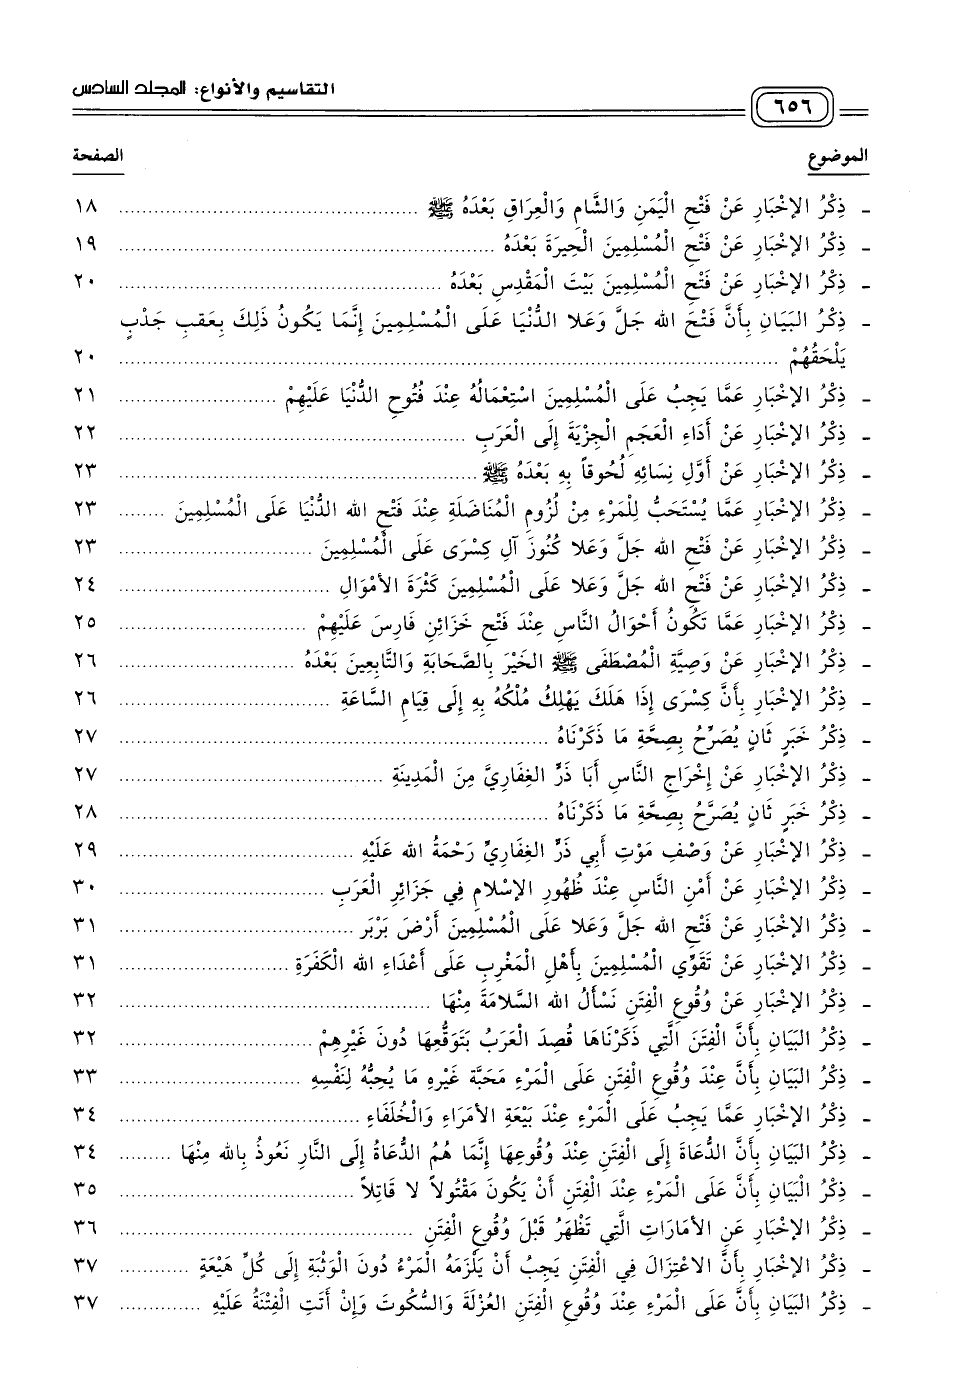 التقاسيم والأنواع: المجلد السادس
٦٥٦
الموضوع الصفحة
- ذِكْرُ الإخْبَارِ عَنْ فَتْحِ الْيَمَنِ وَالشَّامِ وَالْعِرَاقِ بَعْدَهُ ﷺ ........ ١٨
- ذِكْرُ الإخْبَارِ عَنْ فَتْحِ الْمُسْلِمِينَ الْحِيرَةَ بَعْدَهُ ........ ١٩
- ذِكْرُ الإخْبَارِ عَنْ فَتْحِ الْمُسْلِمِينَ بَيْتَ الْمَقْدِسِ بَعْدَهُ ........ ٢٠
- ذِكْرُ البَيَانِ بِأَنَّ فَتْحَ الله جَلَّ وَعَلا الدُّنْيَا عَلَى الْمُسْلِمِينَ إِنَّمَا يَكُونُ ذَلِكَ بِعَقِبِ جَدْبٍ
يَلْحَقُهُمْ ........ ٢٠
- ذِكْرُ الإخْبَارِ عَمَّا يَجِبُ عَلَى الْمُسْلِمِينَ اسْتِعْمَالُهُ عِنْدَ فُتُوحِ الدُّنْيَا عَلَيْهِمْ ........ ٢١
- ذِكْرُ الإخْبَارِ عَنْ أَدَاءِ الْعَجَمِ الْجِزْيَةَ إِلَى الْعَرَبِ ........ ٢٢
- ذِكْرُ الإخْبَارِ عَنْ أَوَّلِ نِسَائِهِ لُحُوقاً بِهِ بَعْدَهُ ﷺ ........ ٢٣
- ذِكْرُ الإخْبَارِ عَمَّا يُسْتَحَبُّ لِلْمَرْءِ مِنْ لُزُومِ الْمُنَاضَلَةِ عِنْدَ فَتْحِ الله الدُّنْيَا عَلَى الْمُسْلِمِينَ ........ ٢٣
- ذِكْرُ الإخْبَارِ عَنْ فَتْحِ الله جَلَّ وَعَلا كُنُوزَ آلِ كِسْرَى عَلَى الْمُسْلِمِينَ ........ ٢٣
- ذِكْرُ الإخْبَارِ عَنْ فَتْحِ الله جَلَّ وَعَلا عَلَى الْمُسْلِمِينَ كَثْرَةَ الأمْوَالِ ........ ٢٤
- ذِكْرُ الإخْبَارِ عَمَّا تَكُونُ أَحْوَالُ النَّاسِ عِنْدَ فَتْحِ خَزَائِنِ فَارِسَ عَلَيْهِمْ ........ ٢٥
- ذِكْرُ الإخْبَارِ عَنْ وَصِيَّةِ الْمُصْطَفَى ﷺ الخَيْرَ بِالصَّحَابَةِ وَالتَّابِعِينَ بَعْدَهُ ........ ٢٦
- ذِكْرُ الإخْبَارِ بِأَنَّ كِسْرَى إِذَا هَلَكَ يَهْلِكُ مُلْكُهُ بِهِ إِلَى قِيَامِ السَّاعَةِ ........ ٢٦
- ذِكْرُ خَبَرٍ ثَانٍ يُصَرِّحُ بِصِحَّةِ مَا ذَكَرْنَاهُ ........ ٢٧
- ذِكْرُ الإخْبَارِ عَنْ إِخْرَاجِ النَّاسِ أَبَا ذَرٍّ الغِفَارِيَّ مِنَ الْمَدِينَةِ ........ ٢٧
- ذِكْرُ خَبَرٍ ثَانٍ يُصَرِّحُ بِصِحَّةِ مَا ذَكَرْنَاهُ ........ ٢٨
- ذِكْرُ الإخْبَارِ عَنْ وَصْفِ مَوْتِ أَبِي ذَرٍّ الغِفَارِيِّ رَحْمَةُ الله عَلَيْهِ ........ ٢٩
- ذِكْرُ الإخْبَارِ عَنْ أَمْنِ النَّاسِ عِنْدَ ظُهُورِ الإسْلامِ فِي جَزَائِرِ الْعَرَبِ ........ ٣٠
- ذِكْرُ الإخْبَارِ عَنْ فَتْحِ الله جَلَّ وَعَلا عَلَى الْمُسْلِمِينَ أَرْضَ بَرْبَر ........ ٣١
- ذِكْرُ الإخْبَارِ عَنْ تَقَوِّي الْمُسْلِمِينَ بِأَهْلِ الْمَغْرِبِ عَلَى أَعْدَاءِ الله الْكَفَرَةِ ........ ٣١
- ذِكْرُ الإخْبَارِ عَنْ وُقُوعِ الْفِتَنِ نَسْأَلُ الله السَّلامَةَ مِنْهَا ........ ٣٢
- ذِكْرُ البَيَانِ بِأَنَّ الْفِتَنَ الَّتِي ذَكَرْنَاهَا قُصِدَ الْعَرَبُ بَتَوَقُّعِهَا دُونَ غَيْرِهِمْ ........ ٣٢
- ذِكْرُ البَيَانِ بِأَنَّ عِنْدَ وُقُوعِ الْفِتَنِ عَلَى الْمَرْءِ مَحَبَّةَ غَيْرِهِ مَا يُحِبُّهُ لِنَفْسِهِ ........ ٣٣
- ذِكْرُ الإخْبَارِ عَمَّا يَجِبُ عَلَى الْمَرْءِ عِنْدَ بَيْعَةِ الأمَرَاءِ وَالْخُلَفَاءِ ........ ٣٤
- ذِكْرُ البَيَانِ بِأَنَّ الدُّعَاةَ إِلَى الْفِتَنِ عِنْدَ وُقُوعِهَا إِنَّمَا هُمُ الدُّعَاةُ إِلَى النَّارِ نَعُوذُ بِالله مِنْهَا ........ ٣٤
- ذِكْرُ الْبَيَانِ بِأَنَّ عَلَى الْمَرْءِ عِنْدَ الْفِتَنِ أَنْ يَكُونَ مَقْتُولاً لا قَاتِلاً ........ ٣٥
- ذِكْرُ الإخْبَارِ عَنِ الأمَارَاتِ الَّتِي تَظْهَرُ قَبْلَ وُقُوعِ الْفِتَنِ ........ ٣٦
- ذِكْرُ الإخْبَارِ بِأَنَّ الاعْتِزَالَ فِي الْفِتَنِ يَجِبُ أَنْ يَلْزَمَهُ الْمَرْءُ دُونَ الْوَثْبَةِ إِلَى كُلِّ هَيْعَةٍ ........ ٣٧
- ذِكْرُ البَيَانِ بِأَنَّ عَلَى الْمَرْءِ عِنْدَ وُقُوعِ الْفِتَنِ العُزْلَةَ وَالسُّكُوتَ وَإِنْ أَتَتِ الْفِتْنَةُ عَلَيْهِ ........ ٣٧